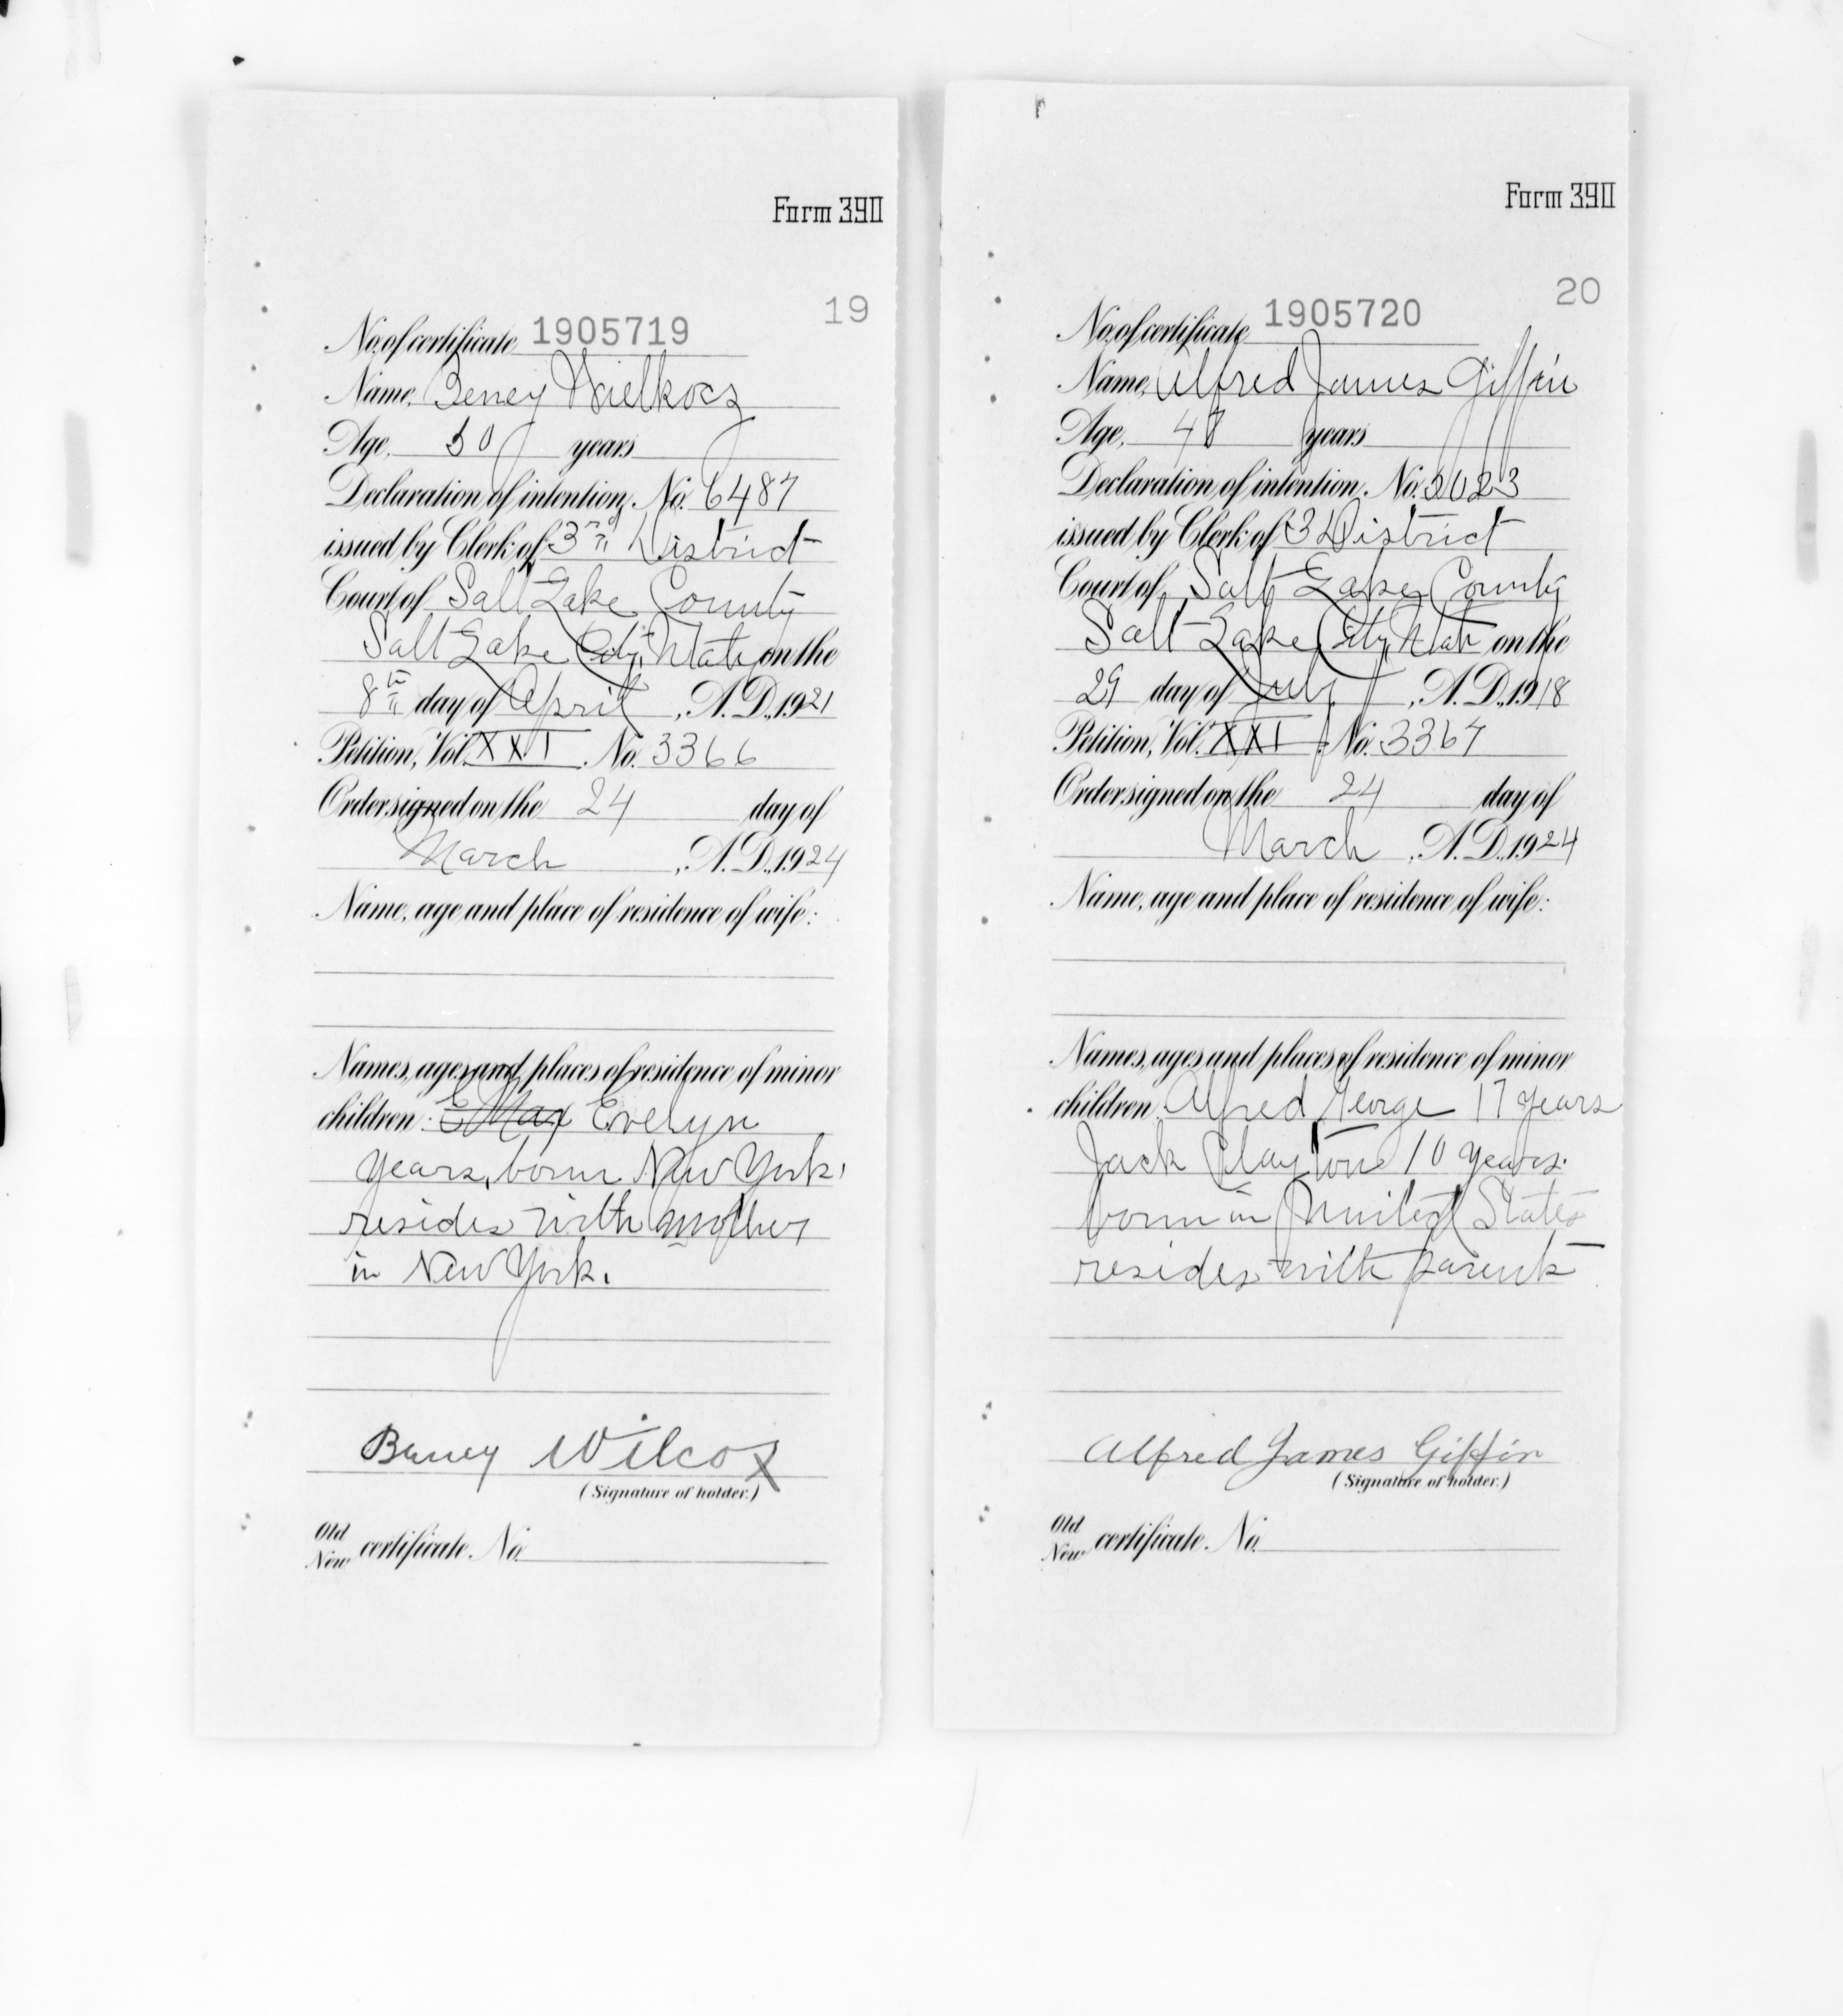 Form 390
19
No. of certificate 1905719
Name, Beney Wielkocz
Age, 30 years
Declaration of intention, No. 6487
issued by Clerk of 3rd District
Court of Salt Lake County
Salt Lake City, Utah on the
8th day of April, A.D., 1921
Petition, Vol. XXI. No. 3366
Order signed on the 24 day of
March, A.D., 1924
Name, age and place of residence of wife:
Names, ages and places of residence of minor
children: Evelyn
years, born New York.
resides with mother
in New York.
Wilcox
(Signature of holder.)
Old
New certificate. No.
Form 390
20
No. of certificate 1905720
Name, Alfred James Giffin
Age, 48 years
Declaration of intention. No.
issued by Clerk of 3 District
Court of Salt Lake County
Salt Lake City, Utah on the
29 day of July, A.D., 1918
Petition, Vol. XXI. No. 3367
Order signed on the 24 day of
March, A.D., 1924
Name, age and place of residence of wife:
Names, ages and places of residence of minor
children. Alfred George 17 years
Jack Clayton 10 years.
born in United States
resides with parents
Alfred James Giffin
(Signature of holder.)
Old
New certificate. No.